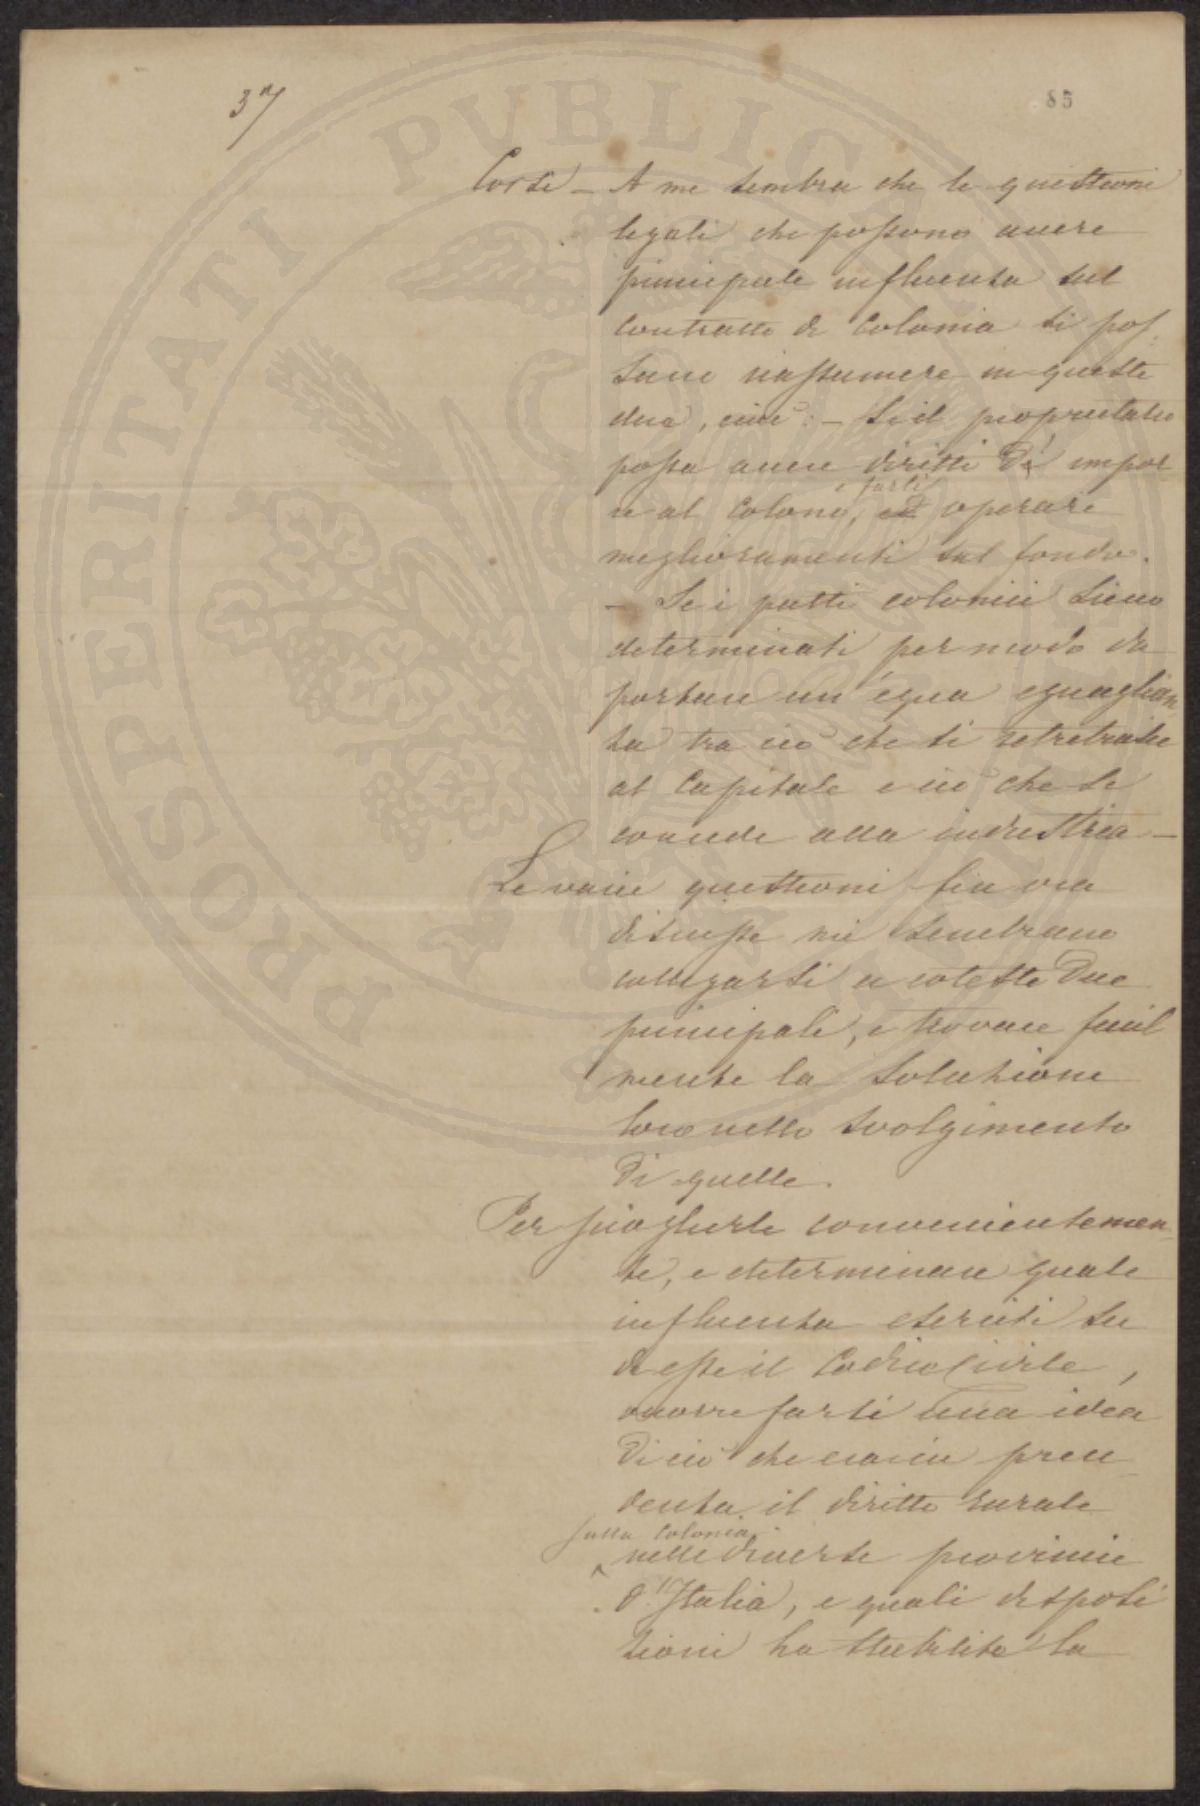 37
85
Corsi - A me sembra che le questioni
legali che possono avere
principale influenza sul
contratto di Colonia si pos-
sano riassumere in queste
due, cioè: - Se il proprietario
possa avere diritti di impor-
re al colono,
operare
miglioramenti sul fondo.
- Se i patti colonici sieno
determinati per modo da
portare un' equa eguaglian
za tra ciò che si retribuisce
al Capitale e ciò che si
concede alla industria -
Le varie questioni fin ora
discusse mi sembrano
collegarsi a coteste due
principali, e trovare facil
mente la soluzione
loro nello svolgimento
di quelle.
Per scioglierle convenientemen-
te, e determinare quale
influenza eserciti su
di esse il Codice Civile,
occorre farsi una idea
di ciò che era in prece
denza il diritto rurale
sulla Colonia
nelle diverse provincie
d'Italia, e quali disposi
zioni ha stabilito la
PROSPERITATI PUBLICAE